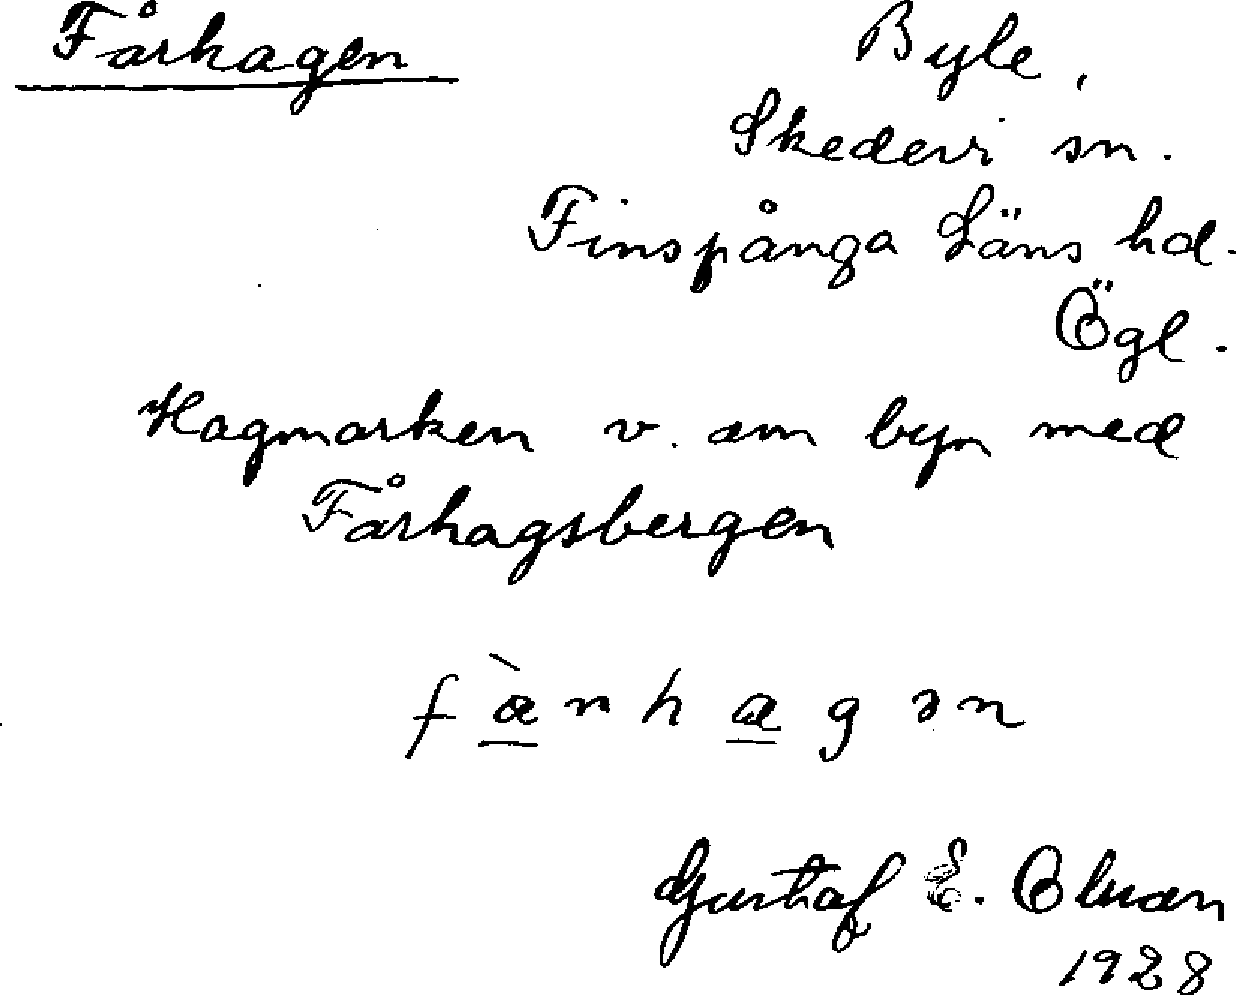 Fårhagen
Byle,
Skedevi sn.
Finspånga Läns hd.
Ögl.
Hagmarken v. om byn med
Fårhagsbergen
Gustaf E.
1928